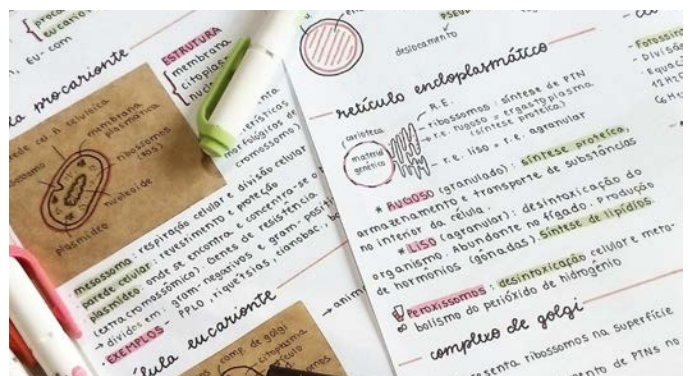 proca
eucario
Eu- com
ESTRUTURA
membrana
citoplas
nucl
procarionte
parede cel. ñ celulósica
membrana
plasmática
ribossomos
(70s)
nucleoide
plasmídeo
morfológicos de
cromossomo)
mesossoma: respiração celular e divisão celular
parede celular: revestimento e proteção
plasmídeo: onde se encontra e concentra-se o
(extracromossômico). Genes de resistência
→ divides em: gram-negativos e gram-positi
EXEMPLOS - PPLO, riquetsias, cianobac., ba
lula eucarionte
comp. de golgi
citoplasma
deslocamento
retículo endoplasmático
carioteca
material
genético
R.E.
ribossomos: síntese de PTN
r.e. rugoso = ergastoplasma
(síntese proteica)
r.e. liso = r.e. agranular
* RUGOSO (granulado): síntese proteica,
armazenamento e transporte de substâncias
no interior da célula.
* LISO (agranular): desintoxicação do
organismo. Abundante no fígado. Produção
de hormônios (gonadas). Síntese de lipídios.
Peroxissomos: desintoxicação celular e meta-
bolismo do perióxido de hidrogênio
complexo de golgi
→ anim
esenta ribossomos na superfície
mento de PTNs no
- Fotossín
- Divisão
- Equaçã
12 H2O
C6H12